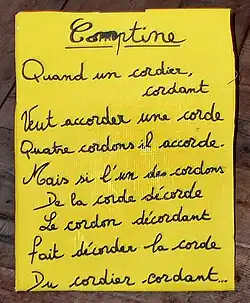 Comptine
Quand un cordier,
cordant
Veut accorder une corde
Quatre cordons il accorde.
Mais si l'un des cordons
De la corde décorde
Le cordon décordant
Fait décorder la corde
Du cordier cordant...